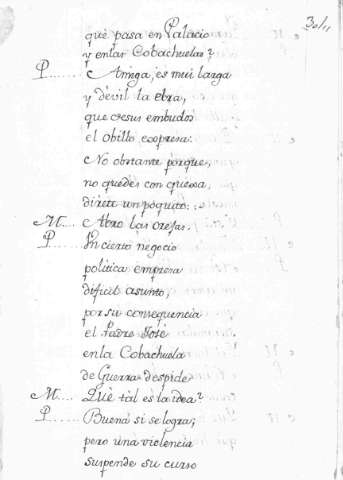 30/11
que pasa en Palacio
y enlas Cobachuelas?
P....... Amiga, es mui larga
y dèvil la ebra,
que desus embudos
el obillo expresa:
No obstante porque,
no quedes con quexa,
dirète un poquito:
M.... Abro las orejas.
P...... In cierto negocio
politica empresa
dificil asunto,
por su consequencia
el Padre José
enla Cobachuela
de Guerra despide
M.... Què tàl es la idea?
P...... Buena si se logra;
pero una violencia
suspende su curso